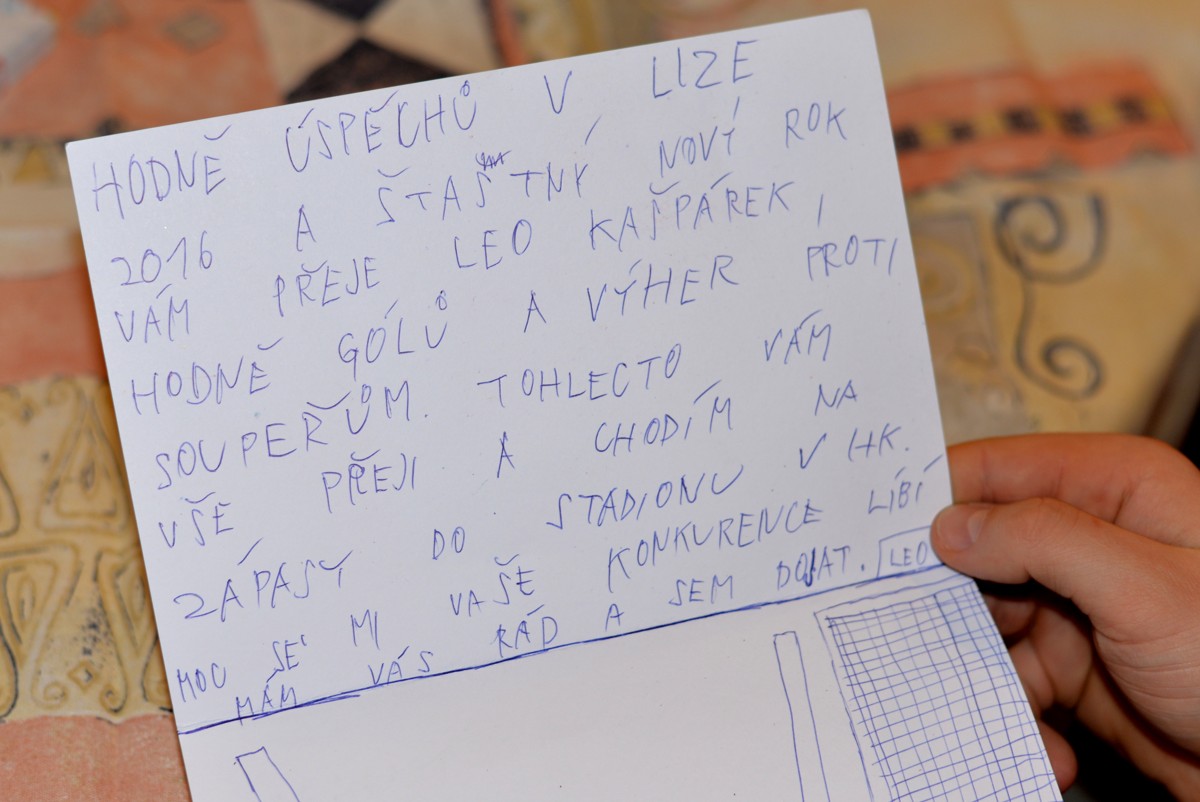 HODNĚ ÚSPĚCHŮ V LIZE
2016 A ŠTAŠTNÝ NOVÝ ROK
VÁM PŘEJE LEO KAŠPÁREK I
HODNĚ GÓLŮ A VÝHER PROTI
SOUPEŘŮM. TOHLECTO VÁM
VŠE PŘEJI A CHODÍM NA
ZÁPASY DO STADIONU V HK.
MOC SE MI VAŠE KONKURENCE LÍBÍ
MÁM VÁS RÁD A SEM DOJAT. LEO